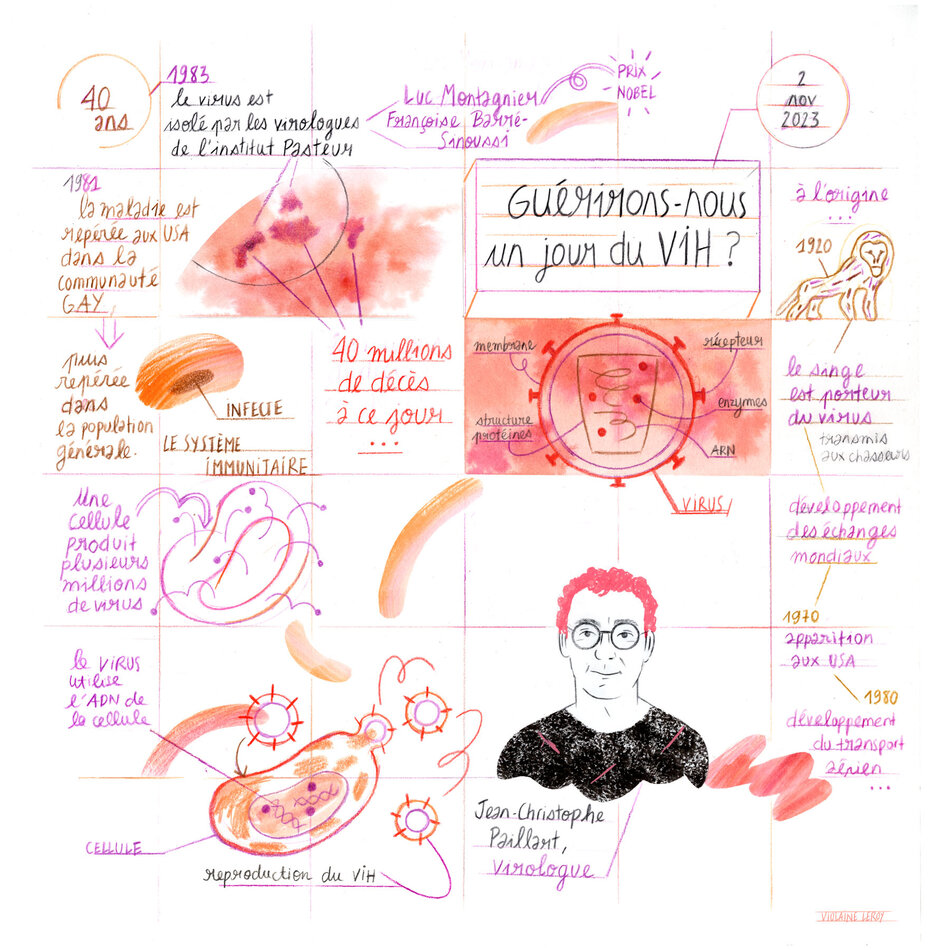 40
ans
1983
le virus est
isolé par les virologues
de l'institut Pasteur
Luc Montagnier
Françoise Barré-
Sinoussi
PRIX
NOBEL
2
nov
2023
1981
la maladie est
repérée aux USA
dans la
communauté
GAY,
puis
repérée
dans
la population
générale.
INFECTE
LE SYSTÈME
IMMUNITAIRE
40 millions
de décès
à ce jour
...
GUÉRIRONS-NOUS
un jour du VIH ?
membrane
récepteur
structure
protéines
enzymes
ARN
VIRUS
à l'origine
...
1920
le singe
est porteur
du virus
transmis
aux chasseurs
développement
des échanges
mondiaux
1970
apparition
aux USA
1980
développement
du transport
aérien
...
Une
cellule
produit
plusieurs
millions
de virus
le VIRUS
utilise
l'ADN de
la cellule
CELLULE
reproduction du VIH
Jean-Christophe
Paillart,
Virologue
VIOLAINE LEROY